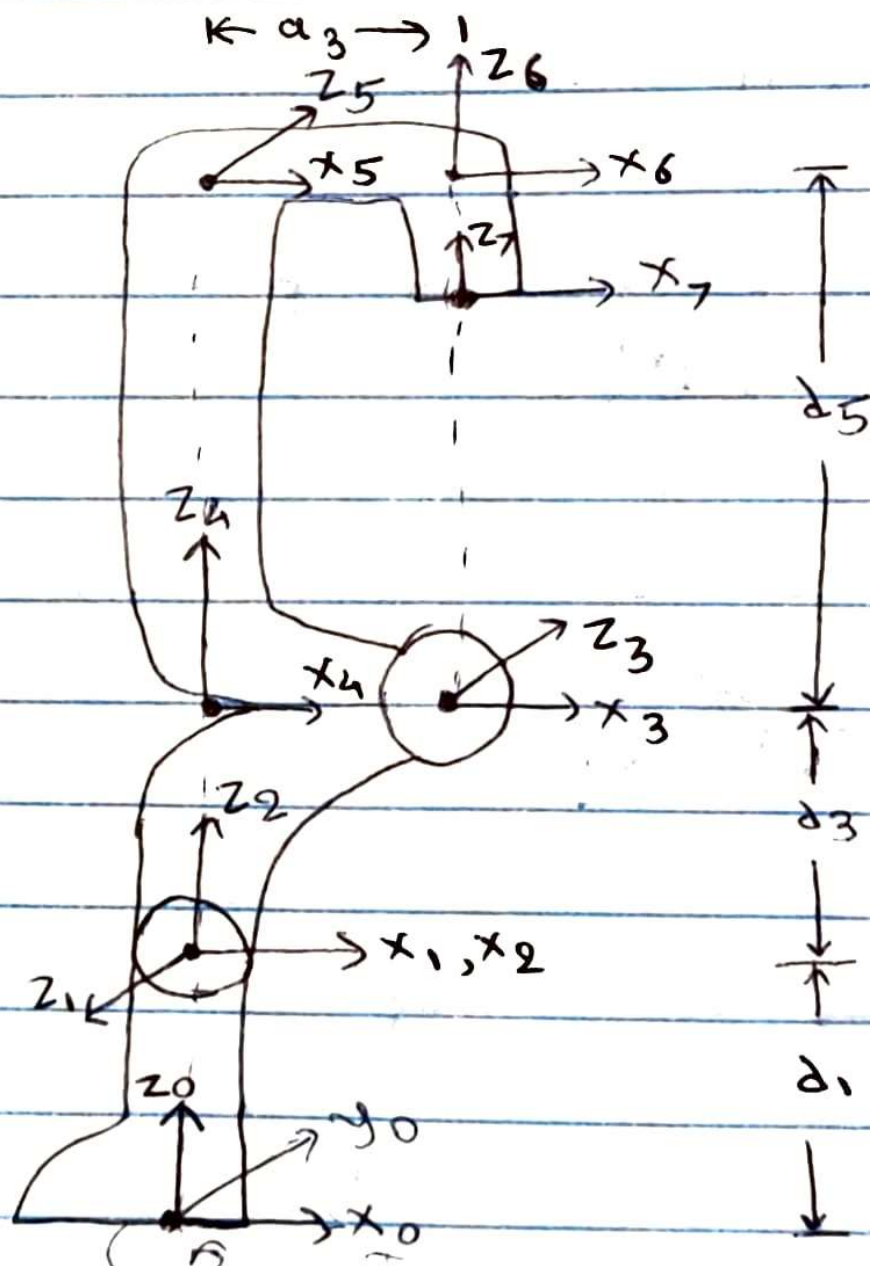 a3 1
z6
z5
x5 x6
z7
x7
d5
z4
z3
x4
x3
z2
d3
x1, x2
z1
d1
z0
y0
x0